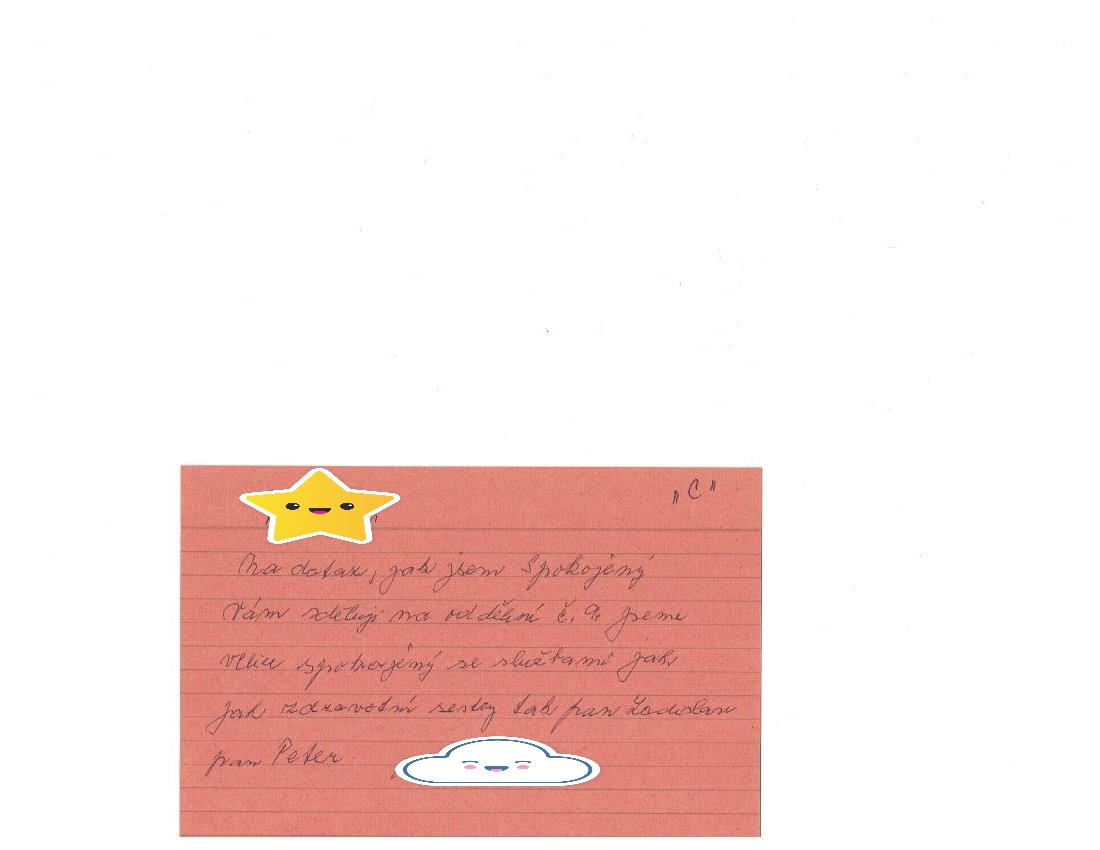 „C"
Na dotaz, jak jsem Spokojený
Vám sděluji na oddělení č. 9. jsme
velice spokojený se službami jak
jak zdravotní sestry tak pan
pan Peter